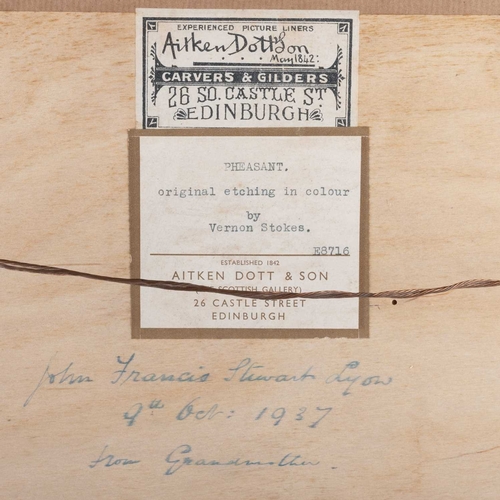 EXPERIENCED PICTURE LINERS
Aitken Dott & Son
May 1842:
CARVERS & GILDERS
26 SO. CASTLE ST
EDINBURGH
PHEASANT.
original etching in colour
by
Vernon Stokes.
E8716
ESTABLISHED 1842
AITKEN DOTT & SON
SCOTTISH GALLERY)
26 CASTLE STREET
EDINBURGH
John Francis Stewart Lyon
9th Oct: 1937
from Grandmother.